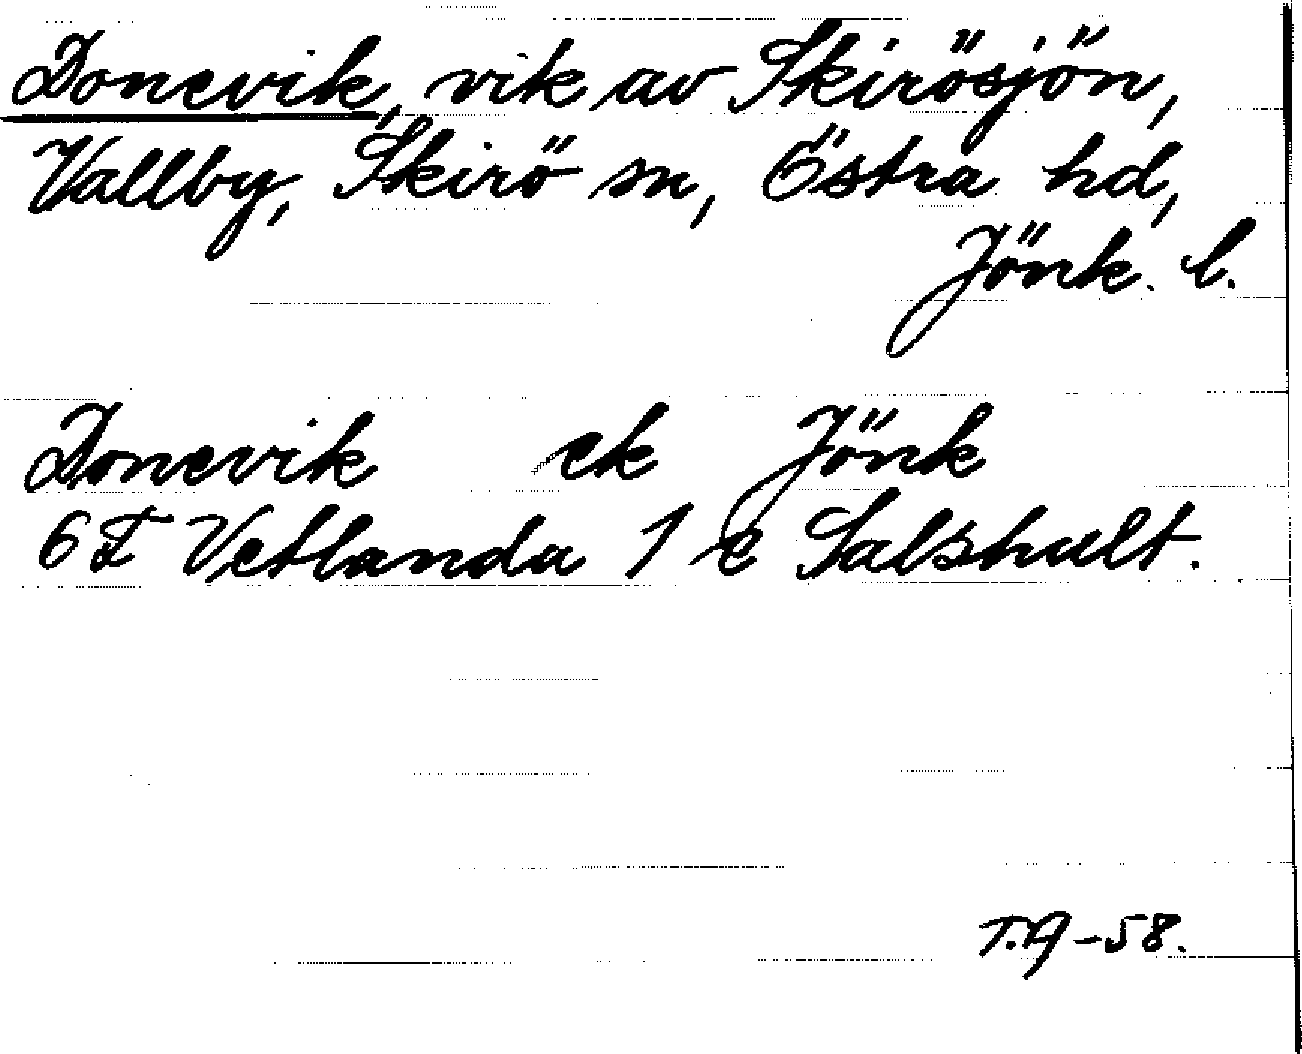 Donevik, vik av Skirösjön,
Vallby, Skirö sn, Östra hd,
Jönk. l.
Donevik ek Jönk
6 F Vetlanda 1 c Salshult.
-58.